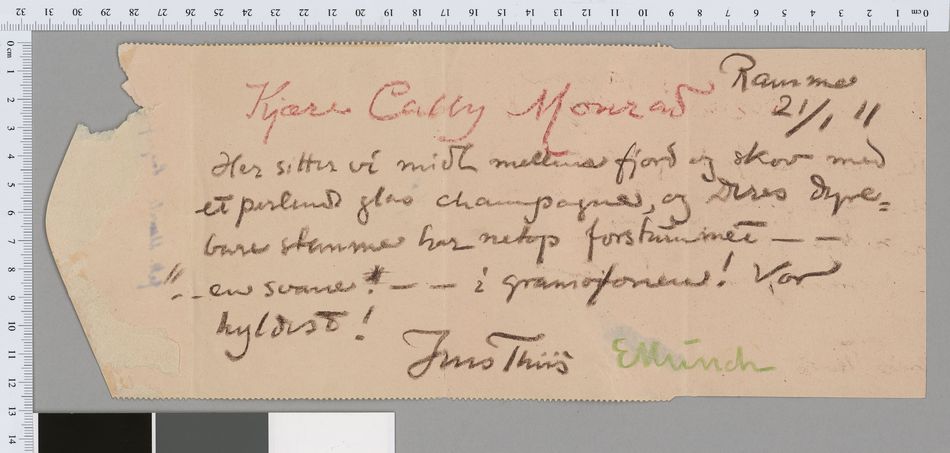 Ramme
21/1 11
Kjære Cally Monrad
Her sitter vi midt mellem fjord og skov med
et perlende glas champagne, og Deres dyre=
bare stemme har netop forstummet — —
"– en svane! — — i gramofonen! Vor
hyldest!
Jens Thiis EMunch